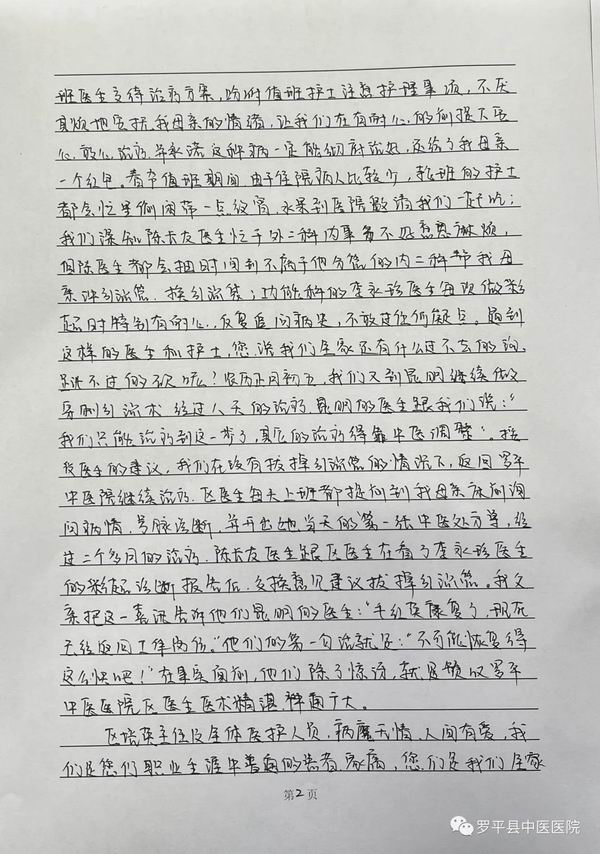 班医生交待治疗方案，吩咐值班护士注意护理事项，不厌
其烦地安抚我母亲的情绪，让我们在有耐心的前提下安
心、放心治疗，并承诺这种病一定能彻底治好，还给了我母亲
一个红包。春节值班期间，由于住院病人比较少，轮班的护士
都会忙里偷闲带一点纹宵、水果到医院邀请我们一起吃；
我们深知陈长友医生忙于外二科内事务不好意思麻烦，
但陈医生都会抽时间到不属于他分管的内二科帮我母
亲冲引流管、换引流袋；功能科的李永珍医生每次做彩
超时特别有耐心，反复追问病史，不放过任何疑点。遇到
这样的医生和护士，您说我们全家还有什么过不去的沟，
迈不过的坎呢？农历正月初五，我们又到昆明继续做
穿刺引流术，经过八天的治疗，昆明的医生跟我们说："
我们只能治疗到这一步了，其它的治疗得靠中医调整"。按
照医生的建议，我们在没有拔掉引流管的情况下，返回罗平
中医院继续治疗。区医生每天上班都提前到我母亲床前询
问病情、号脉诊断，并开出她当天的第一张中医处方单，经
过二个多月的治疗，陈长友医生跟区医生在看了李永珍医生
的彩超诊断报告后，交换意见建议拔掉引流管。我父
亲把这一喜讯告诉他们昆明的医生："手红英康复了，现在
天经返回工作岗位。"他们的第一句话就是："不可能恢复得
这么快吧！"在事实面前，他们除了惊讶，就是赞叹罗平
中医医院区医生医术精湛，神通广大。
区瑞英主任及全体医护人员，病魔无情，人间有爱，我
们是您们职业生涯中普通的患者、家属，您们是我们全家
第2页
罗平县中医医院